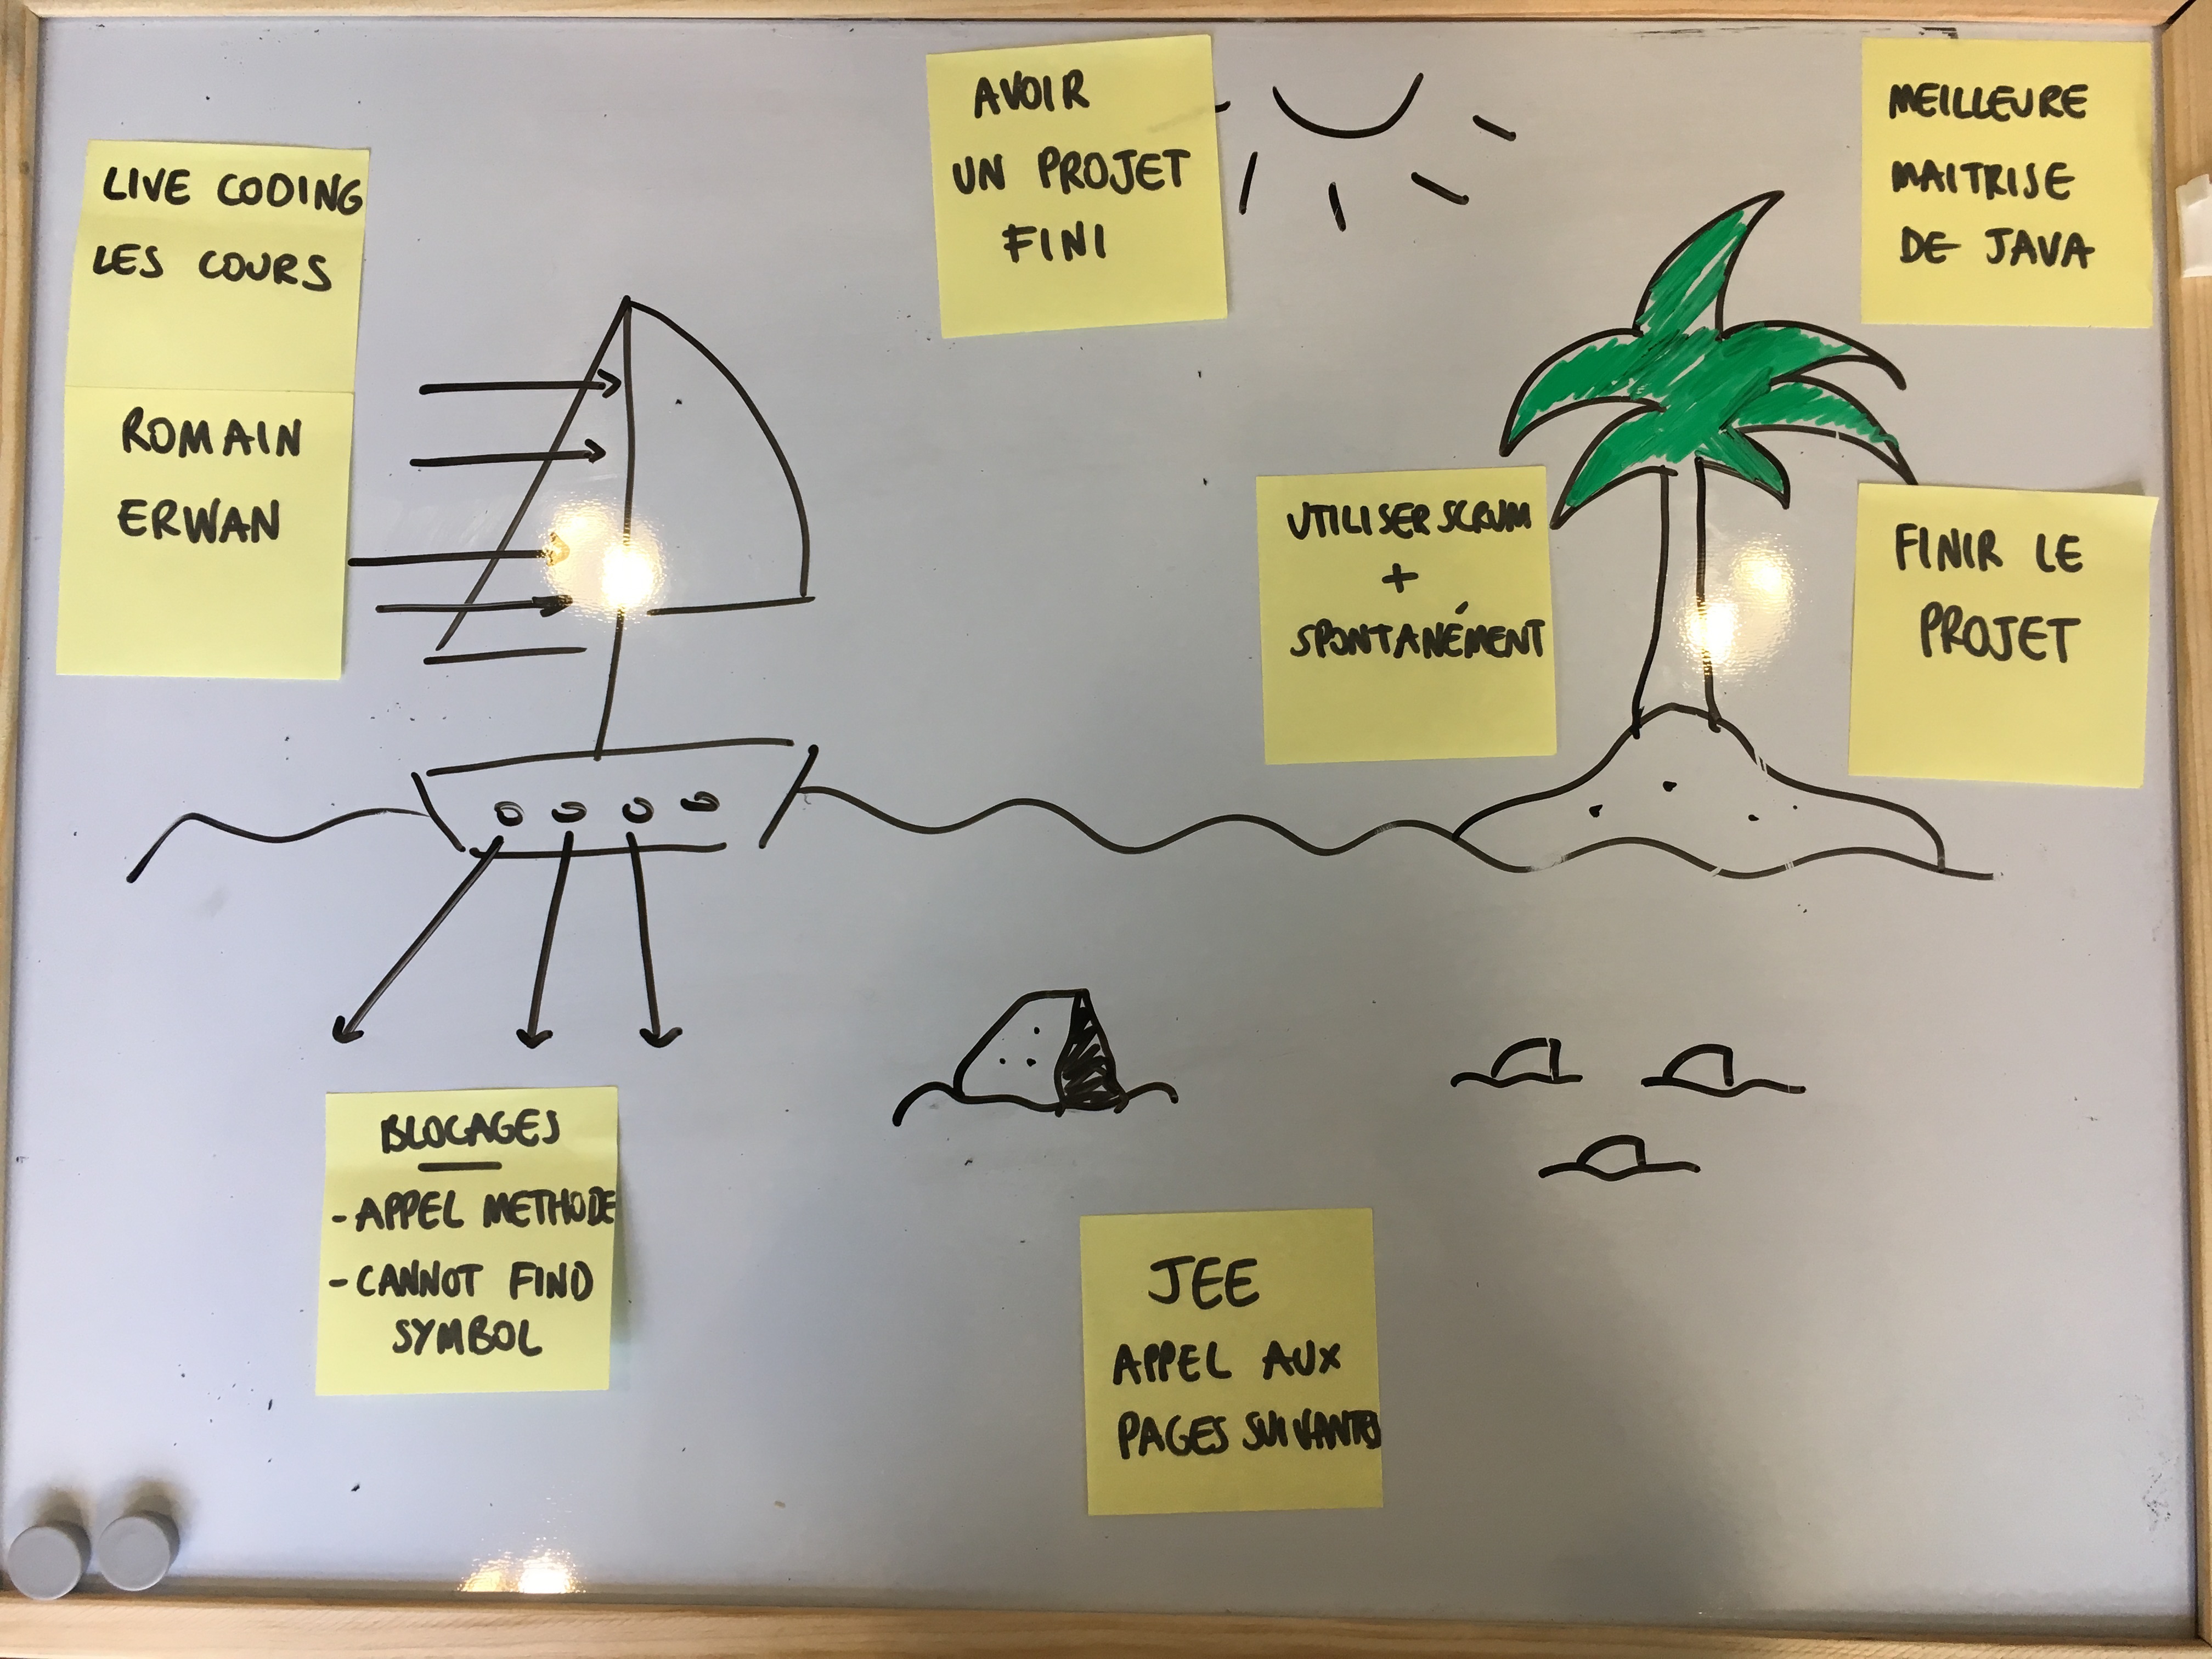 LIVE CODING
LES COURS
ROMAIN
ERWAN
AVOIR
UN PROJET
FINI
MEILLEURE
MAITRISE
DE JAVA
UTILISER SCRUM
+
SPONTANÉMENT
FINIR LE
PROJET
BLOCAGES
- APPEL METHODE
- CANNOT FIND
SYMBOL
JEE
APPEL AUX
PAGES SUIVANTES